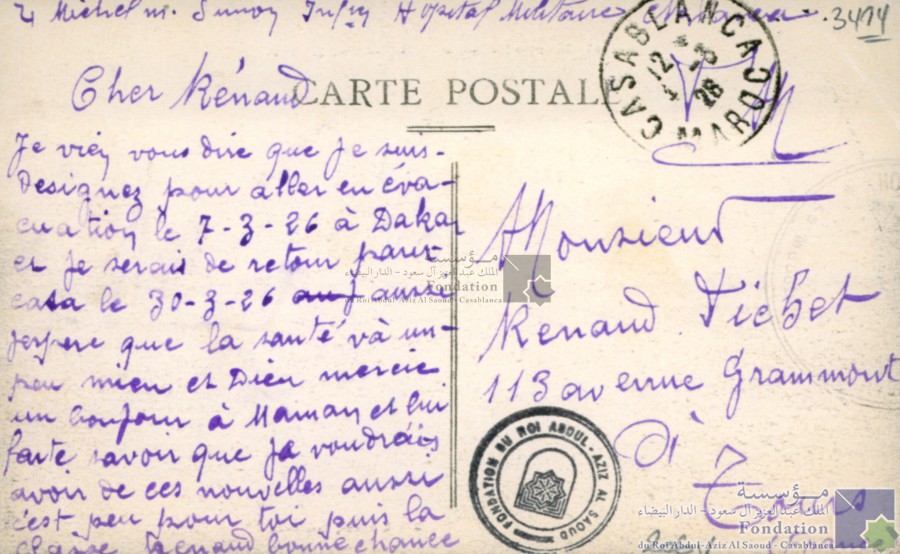 Hopital Militaire
3414
CARTE POSTALE
CASABLANCA
12
28
MAROC
Cher Rénaud
Je vien vous dire que je suis-
Designez pour aller en éva-
cuation le 7-3-26 à Dakar
et je serais de retour pour
casa le 30-3-26 aussi
j'espere que la santé và un-
peu mieu et Dieu mercie
un bonjour à Maman et lui
faite savoir que Je voudrais
avoir de ces nouvelles aussi
c'est peu pour toi puis la
classe Renaud bonne chance
Monsieur
Renaud Pichet
113 avenue Grammont
à Tours
FONDATION DU ROI ABDUL-AZIZ AL SAOUD
مؤسسة
الملك عبد العزيز آل سعود - الدار البيضاء
Fondation
du Roi Abdul-Aziz Al Saoud - Casablanca
مؤسسة
الملك عبد العزيز آل سعود - الدار البيضاء
Fondation
du Roi Abdul-Aziz Al Saoud - Casablanca